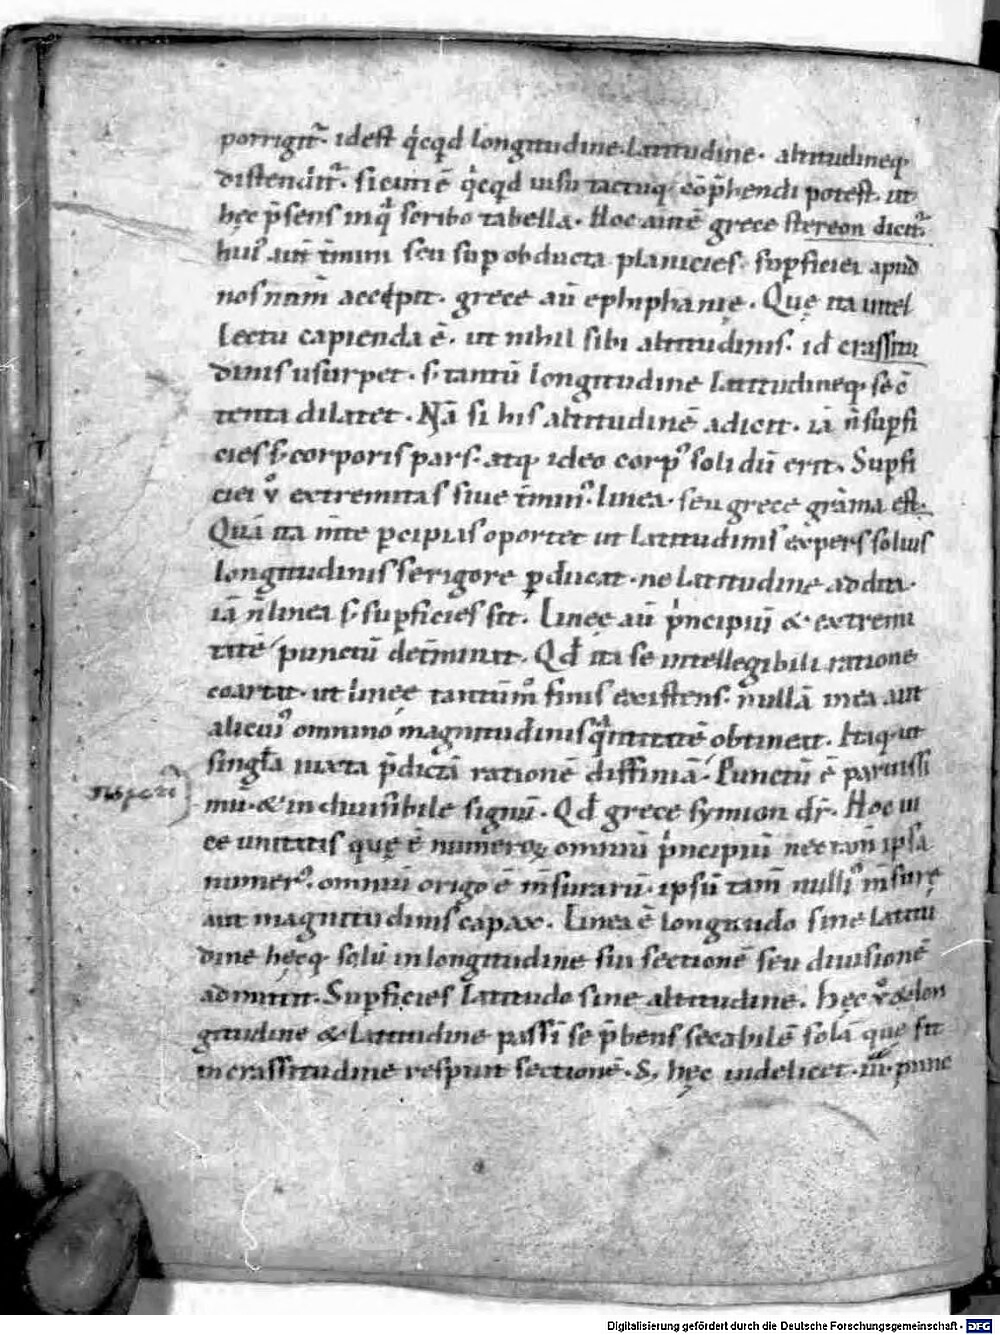 porrigit᷑. idest q̇cqd longitudine. Latitudine. altitudineq;
distendit᷑. sicuti ē q̇cqd uisu tactuq; cōp̄hendi potest. ut
hęc p̄sens inq̇ scribo tabella. Hoc autē grece stereon dicit᷑.
hui᷒ aut̄ t̄minī seu sup obducta planicies. supficiei apud
nos nom̄ accepit. grece aū ephiphanię. Quę ita intel
lectu capienda ē. ut nihil sibi altitudinis. id crassitu
dinis usurpet. s; tantū longitudine Latitudineq; se cō
tenta dilatet. Nā si his altitudinē adicit. iā n̄ supfi
cies s; corporis pars. atq; ideo corp᷒ solidū erit. Supfi
ciei ū extremitas siue t̄min᷒. linea. seu grece grāma est.
Quā ita m̄te pcipias oportet ut Latitudinis expers solius
longitudinis se rigore pducat. ne latitudine addita.
iā n̄ linea s; supficies sit. Lineę aū p̄ncipiū & extremi
tatē punctū det̄minat. Qđ ita se intellegibili ratione
coartat. ut lineę tantūm᷒ finis existens. nullā in ea aut
alicui᷒ omnino magnitudinis q̄ntitatē obtineat. Itaq; ut
singl̄a iuxta p̄dictā rationē diffiniā. Punctū ē paruissi
mū. & indiuisibile signū. Qđ grece symion dr̄. Hoc ui
ce unitatis quę ē numeroꝝ omniū p̄ncipiū nec tam̄ ipsa
numer᷒. omniū origo ē m̄surarū. ipsū tam̄ nulli᷒ m̄surę
aut magnitudinis capax. Linea ē longitudo sine Latitu
dine hęcq; solū in longitudine sui sectionē seu diuisionē
admittit. Supficies Latitudo sine altitudine. hęc ū & lon
gitudine & latitudine passī se p̄bens secabilē solā quę fit
in crassitudine respuit sectionē. S; hęc uidelicet .iii. punc